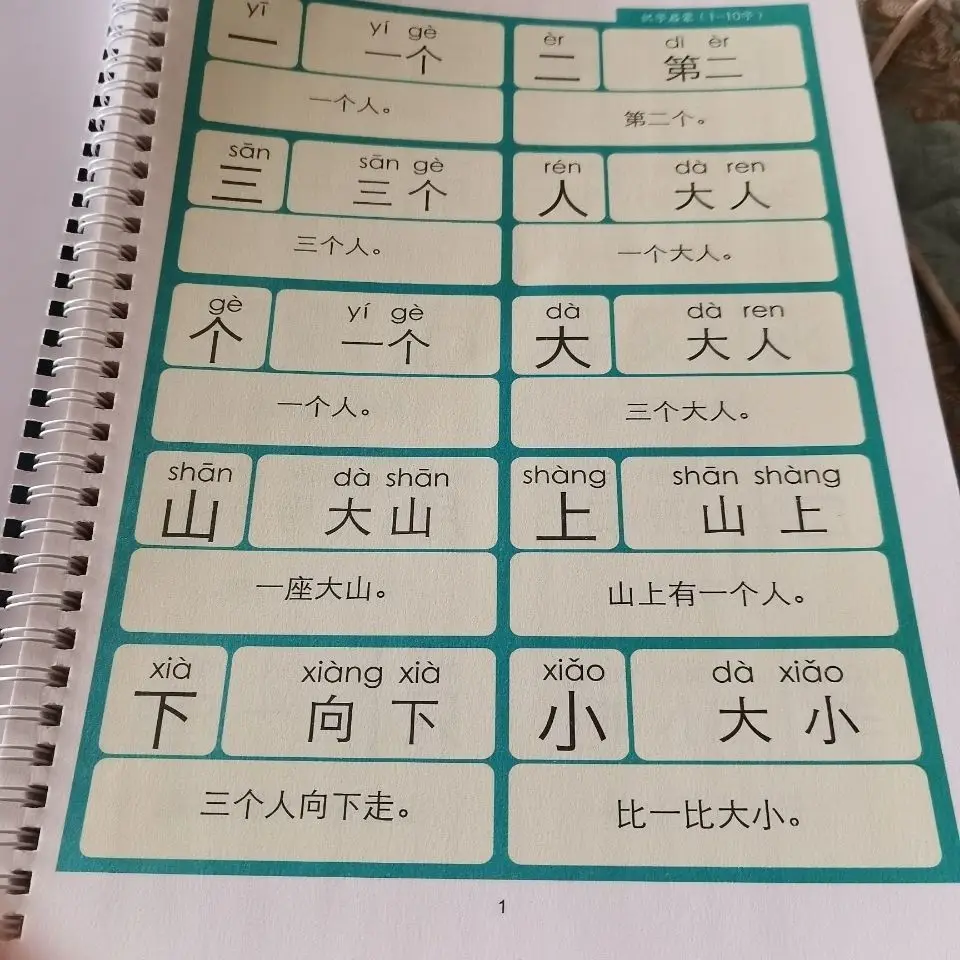 识字启蒙（1-10字）
yī
一
yí gè
一个
èr
二
dì èr
第二
一个人。
第二个。
sān
三
sān gè
三个
rén
人
dà ren
大人
三个人。
一个大人。
gè
个
yí gè
一个
dà
大
dà ren
大人
一个人。
三个大人。
shān
山
dà shān
大山
shàng
上
shān shàng
山上
一座大山。
山上有一个人。
xià
下
xiàng xià
向下
xiǎo
小
dà xiǎo
大小
三个人向下走。
比一比大小。
1